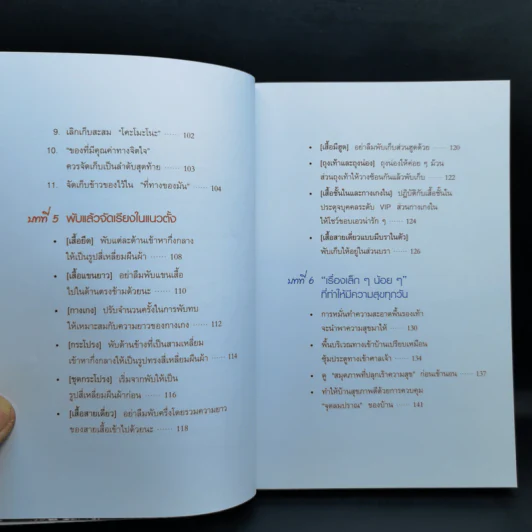 9. เลิกเก็บสะสม "โคะโมะโนะ" ····· 102
10. "ของที่มีคุณค่าทางจิตใจ"
ควรจัดเก็บเป็นลำดับสุดท้าย ····· 103
11. จัดเก็บข้าวของไว้ใน "ที่ทางของมัน" ····· 104
บทที่ 5 พับแล้วจัดเรียงในแนวตั้ง
• [เสื้อยืด] พับแต่ละด้านเข้าหากึ่งกลาง
ให้เป็นรูปสี่เหลี่ยมผืนผ้า ····· 108
• [เสื้อแขนยาว] อย่าลืมพับแขนเสื้อ
ไปในด้านตรงข้ามด้วยนะ ····· 110
• [กางเกง] ปรับจำนวนครั้งในการพับทบ
ให้เหมาะสมกับความยาวของกางเกง ····· 112
• [กระโปรง] พับด้านข้างที่เป็นสามเหลี่ยม
เข้าหากึ่งกลางให้เป็นรูปทรงสี่เหลี่ยมผืนผ้า ····· 114
• [ชุดกระโปรง] เริ่มจากพับให้เป็น
รูปสี่เหลี่ยมผืนผ้าก่อน ····· 116
• [เสื้อสายเดี่ยว] อย่าลืมพับครึ่งโดยรวมความยาว
ของสายเสื้อเข้าไปด้วยนะ ····· 118
• [เสื้อมีฮูด] อย่าลืมพับเก็บส่วนฮูดด้วย ····· 120
• [ถุงเท้าและถุงน่อง] ถุงน่องให้ค่อย ๆ ม้วน
ส่วนถุงเท้าให้วางซ้อนกันแล้วพับเก็บ ····· 122
• [เสื้อชั้นในและกางเกงใน] ปฏิบัติกับเสื้อชั้นใน
ประดุจบุคคลระดับ VIP ส่วนกางเกงใน
ให้โชว์ขอบเอวน่ารัก ๆ ····· 124
• [เสื้อสายเดี่ยวแบบมีบราในตัว]
พับเก็บให้อยู่ในส่วนบรา ····· 126
บทที่ 6 "เรื่องเล็ก ๆ น้อย ๆ"
ที่ทำให้มีความสุขทุกวัน
• การหมั่นทำความสะอาดพื้นรองเท้า
จะนำพาความสุขมาให้ ····· 130
• พื้นบริเวณทางเข้าบ้านเปรียบเหมือน
ซุ้มประตูทางเข้าศาลเจ้า ····· 134
• ดู "สมุดภาพที่ปลุกเร้าความสุข" ก่อนเข้านอน ····· 137
• ทำให้บ้านสุขภาพดีด้วยการควบคุม
"จุดลมปราณ" ของบ้าน ····· 141